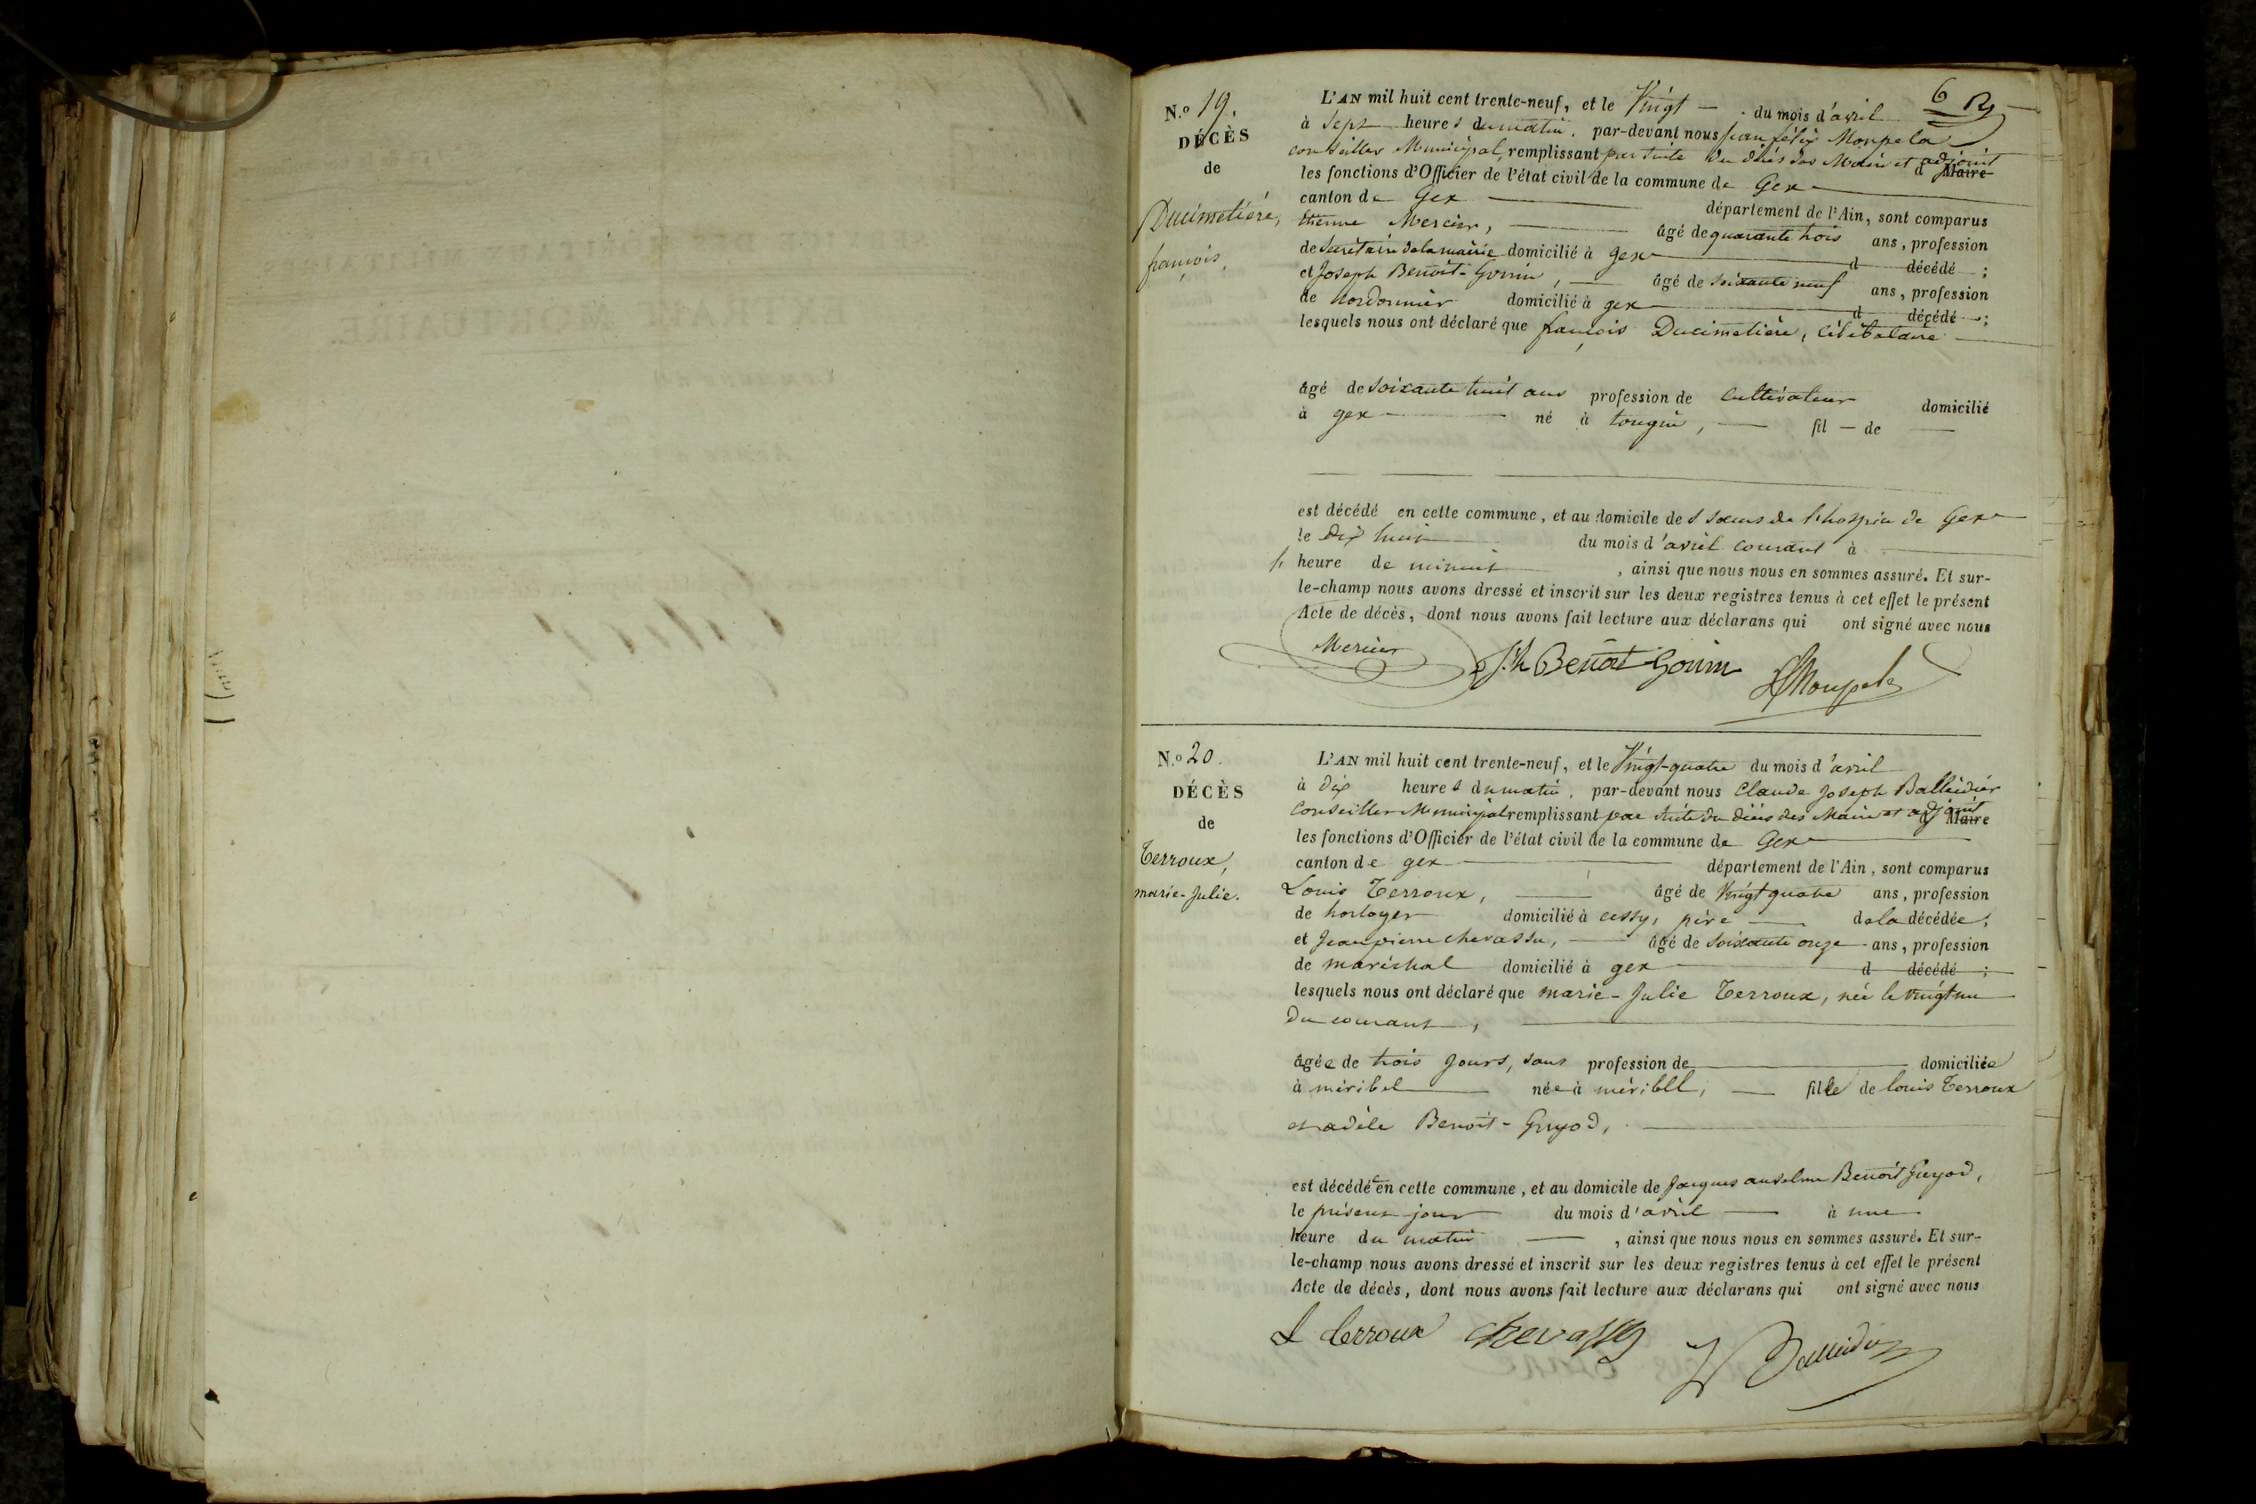 6
N.º 19.
DÉCÈS
de
Ducimetière,
françois.
L'AN mil huit cent trente-neuf, et le Vingt du mois d'avril
à sept heures du matin, par-devant nous Jean félix Monpela
conseiller Municipal, remplissant par suite du décès des Maire et adjoint
les fonctions d'Officier de l'état civil de la commune de Gex d Maire
canton de Gex département de l'Ain, sont comparus
Etienne Mercier, âgé de quarante trois ans, profession
de secrétaire de la mairie domicilié à gex d décédé ;
et Joseph Benoit-Gonin, âgé de soixante neuf ans, profession
de cordonnier domicilié à gex d décédé ;
lesquels nous ont déclaré que françois Ducimetière, célibataire
âgé de soixante huit ans profession de cultivateur domicilié
à gex né à tougin, fil de
est décédé en cette commune, et au domicile des sœurs de l'hospice de Gex
le dix huit du mois d'avril courant à
heure de minuit, ainsi que nous nous en sommes assuré. Et sur-
le-champ nous avons dressé et inscrit sur les deux registres tenus à cet effet le présent
Acte de décès, dont nous avons fait lecture aux déclarans qui ont signé avec nous
Mercier J.h Benoit Gonin Monpela
N.º 20.
DÉCÈS
de
Terroux,
marie-Julie.
L'AN mil huit cent trente-neuf, et le Vingt-quatre du mois d'avril
à dix heures du matin, par-devant nous Claude Joseph Balleidier
Conseiller Municipal remplissant par suite du décès des Maire et adjoint
les fonctions d'Officier de l'état civil de la commune de Gex d Maire
canton de gex département de l'Ain, sont comparus
Louis Terroux, âgé de Vingt quatre ans, profession
de horloger domicilié à cessy, père de la décédée ;
et Jean pierre chevassu, âgé de soixante onze ans, profession
de maréchal domicilié à gex d décédé ;
lesquels nous ont déclaré que marie-Julie Terroux, née le vingt un
du courant,
âgée de trois jours, sans profession de domiciliée
à miribel née à méribell, fille de louis Terroux
et adèle Benoit-Guyod,
est décédée en cette commune, et au domicile de Jacques anselme Benoit Guyod,
le présent jour du mois d'avril à une
heure du matin, ainsi que nous nous en sommes assuré. Et sur-
le-champ nous avons dressé et inscrit sur les deux registres tenus à cet effet le présent
Acte de décès, dont nous avons fait lecture aux déclarans qui ont signé avec nous
L terroux chevassu Balleidier